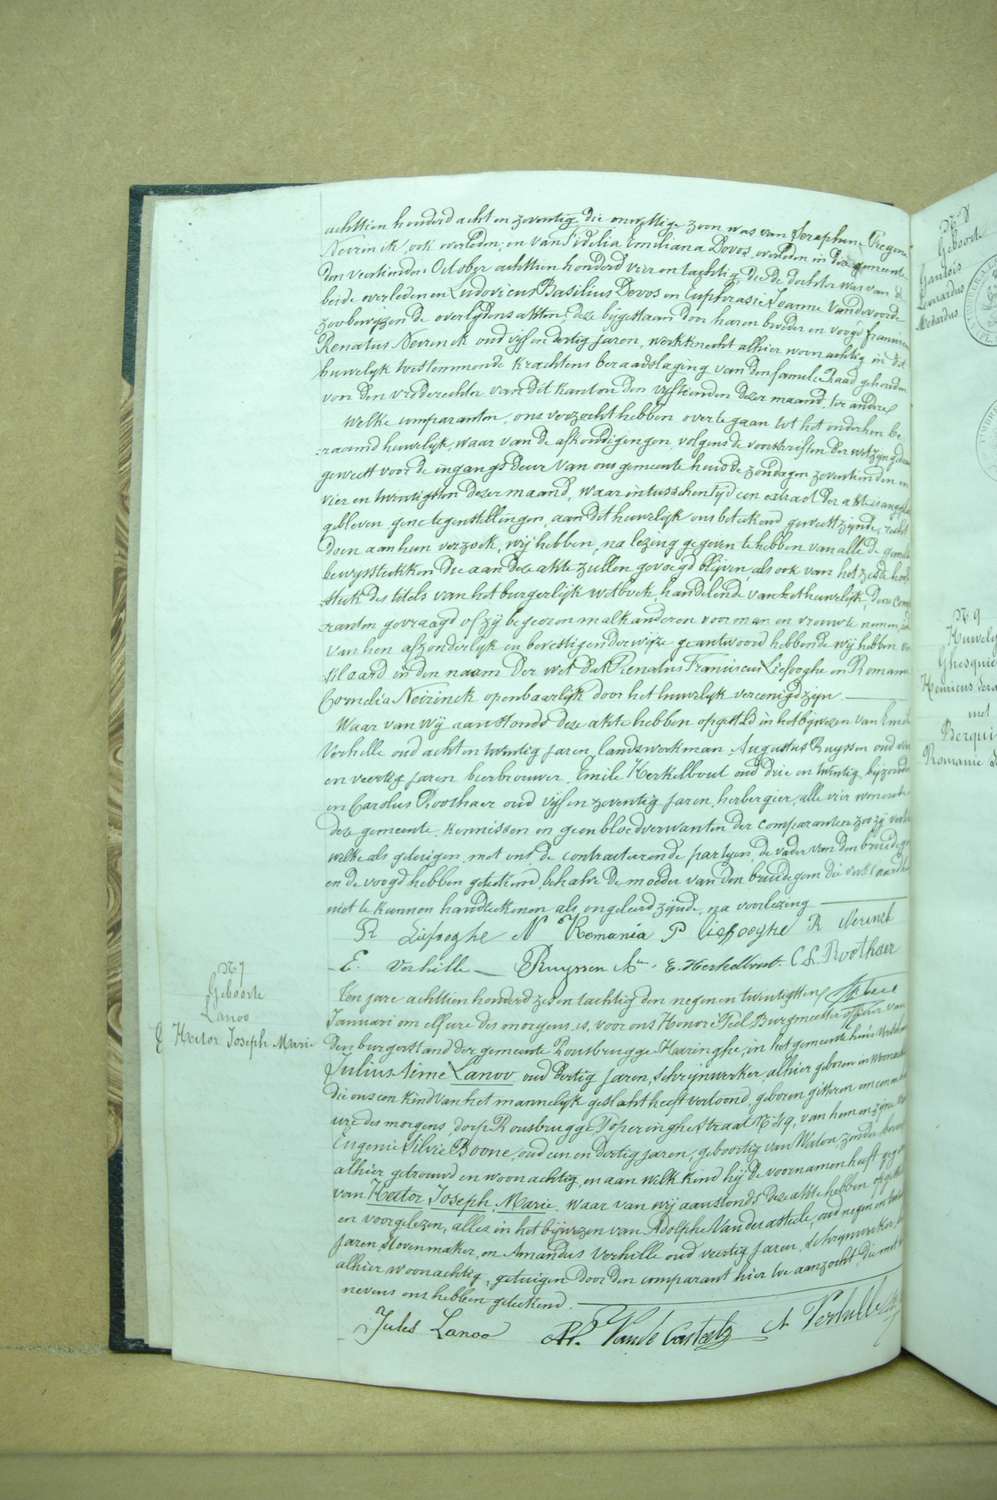 achttien honderd acht en zeventig die onwettige zoon was van Seraphine Gregoria
Neirinck, ook overleden, en van Fidelia Emiliana Dovos, overleden in deze gemeente
den veertienden October achttien honderd vier en tachtig, die de dochter was van de
beide overledenen Ludovicus Basilius Dovos en Euphrasie Joanne Vandevoorde
zoo bewyzen de overlydensakten, deze bijgestaan door haren broeder en voogd Franciscus
Renatus Neirinck oud vijf en dertig jaren, werkknecht alhier woonachtig in dit
huwelyk toestemmende krachtens beraadslaging van den familieraad gehouden
voor den vrederechter van dit kanton den vyftienden dezer maand, ter andere
Welke comparanten, ons verzocht hebben over te gaan tot het onderhen be-
raamd huwelyk, waar van de afkondigingen volgens de voorschriften der wet zyn gedaan
geweest voor de ingangs deur van ons gemeente huis de zondagen zeventienden en
vier en twintigsten dezer maand, waar intusschentyd een extract der akte is aangeplakt
gebleven, geene tegenstellingen, aan dit huwelyk ons beteekend geweest zynde, recht
doen aan hun verzoek, wij hebben, na lezing gegeven te hebben van alle de gemelde
bewysstukken die aan deze akte zullen gevoegd blijven, als ook van het zesde hoof-
stuk des titels van het burgerlijk wetboek, handelende van het huwelyk, deze compa-
ranten gevraagd of zy begeeren malkanderen voor man en vrouw te nemen, ieder
van hen afzonderlyk en bevestigender wyze geantwoord hebbende wij hebben ver-
klaard in den naam der wet dat Renatus Franciscus Liefooghe en Romania
Cornelia Neirinck openbaarlyk door het huwelyk vereenigd zyn
Waar van wij aanstonds deze akte hebben opgesteld in het bijwezen van Emile
Verhille oud acht en twintig jaren, landswerkman, Augustus Ruyssen oud
en veertig jaren bierbrouwer, Emile Herkelbout oud drie en twintig, byzondere
en Carolus Roothaer oud vijf en zeventig jaren, herbergier, alle vier wonende in
deze gemeente, kennissen en geen bloedverwanten der comparanten zoo zij verklaren
welke als getuigen, met ons, de contracteerende partyen, de vader van den bruidegom
en de voogd hebben geteekend, behalve de moeder van den bruidegom die verklaarde
niet te kunnen handteekenen als ongeleerd zijnde, na voorlezing
R Liefooghe N Romania P Liefooghe R Nerinck
E. Verhille Ruyssen A. E. Herkelbout. C L Roothaer
N 7
Geboorte
Lanoo
Hector Joseph Marie
Ten jare achttien honderd zes en tachtig den negen en twintigsten
Januari om elf ure des morgens, is, voor ons Honoré Feel Burgmeester officier van
den burgerstand der gemeente Rousbrugge Haringhe, in het gemeente huis verschenen
Julius Aimé Lanoo oud dertig jaren, schrynwerker, alhier geboren en woonachtig
die ons een kind van het mannelyk geslacht heeft vertoond, geboren gisteren om een
ure des morgens dorp Rousbrugge Poperinghestraat N 49, van hem en zyne
Eugenie Silvie Boone, oud een en dertig jaren, geboortig van Watou, zonder beroep
alhier getrouwd en woonachtig, en aan welk kind hij de voornamen heeft gegeven
van Hector Joseph Marie, waar van wij aanstonds deze akte hebben opgesteld
en voorgelezen, alles in het bijwezen van Adolphe Vande casteele, oud negen en
jaren, stovenmaker, en Amandus Verhille oud veertig jaren, schrynwerker,
alhier woonachtig, getuigen door den comparant hier toe aanzocht, die met
nevens ons hebben geteekend.
Jules Lanoo Ad. Vande Casteele A Verhille
N 8
Geboorte
Gantois
Leonardus
Medardus
N. 9
Huwelyk
Ghesquie
Henricus
met
Berqui
Romanie